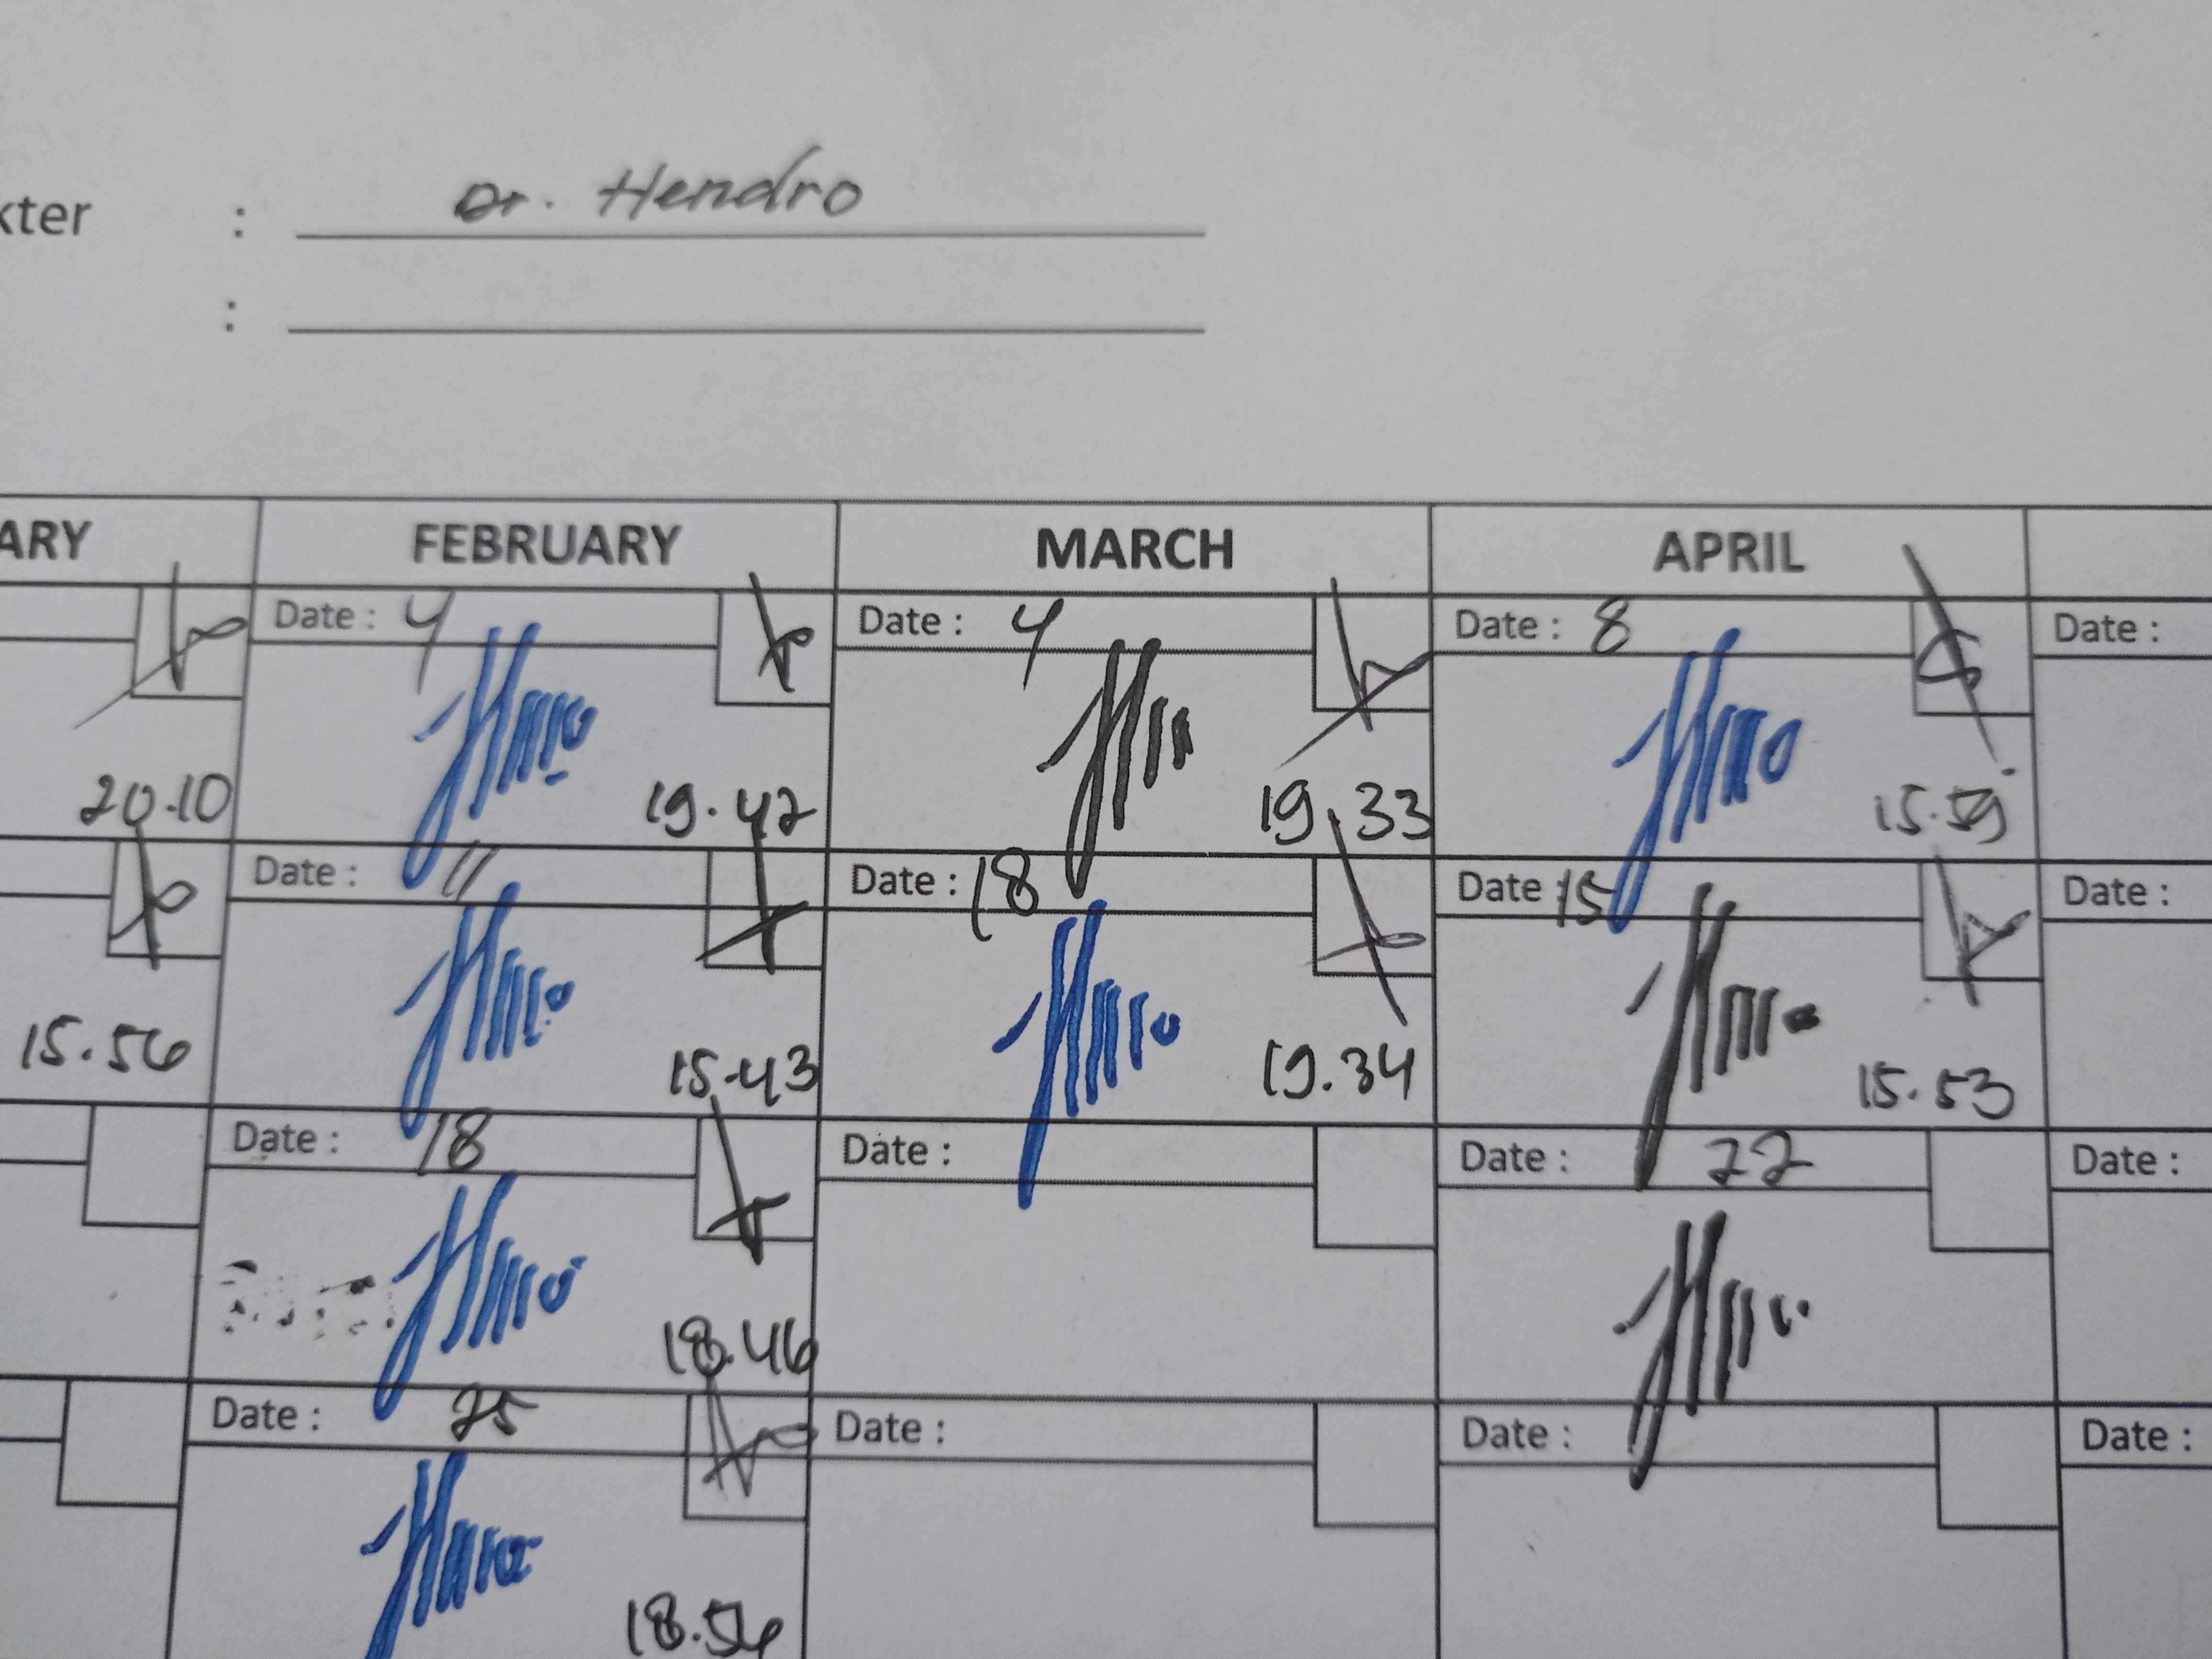 kter : Dr. Hendro
:
ARY FEBRUARY MARCH APRIL
Date : 4 Date : 4 Date : 8 Date :
20.10 19.42 19.33 15.59
Date : 11 Date : 18 Date 15 Date :
15.56 15.43 19.34 15.53
Date : 18 Date : Date : 22 Date :
18.46
Date : 25 Date : Date : Date :
18.56